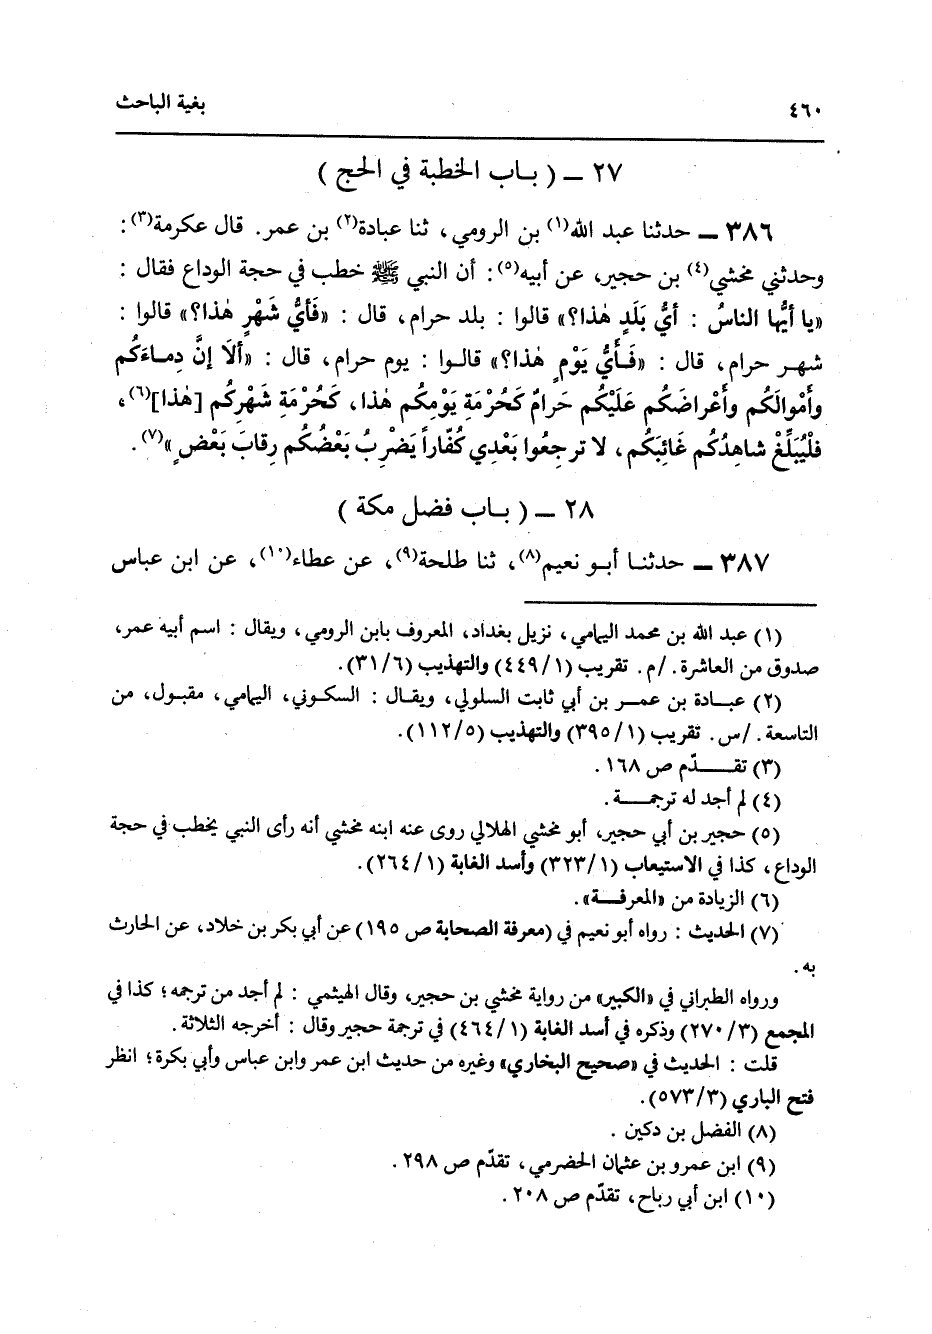 ٤٦٠
بغية الباحث
٢٧ ـ ( بـاب الخطبة في الحج )
٣٨٦ ـ حدثنا عبد الله(١) بن الرومي، ثنا عبادة(٢) بن عمر. قال عكرمة(٣) :
وحدثني مخشي(٤) بن حجير، عن أبيه(٥) : أن النبي ﷺ خطب في حجة الوداع فقال :
«يا أيُّها الناسُ : أيُّ بَلَدٍ هٰذا؟» قالوا : بلد حرام، قال : «فَأيُّ شَهْرٍ هٰذا؟» قالوا :
شهـر حرام، قال : «فَـأَيُّ يَوْمٍ هٰذا؟» قالـوا : يوم حرام، قال : «ألَا إنَّ دِماءَكُم
وأَمْوالَكُم وأَعْراضَكُم عَلَيْكُم حَرامٌ كَحُرْمَةِ يَوْمِكُم هٰذا، كَحُرْمَةِ شَهْرِكُم [هٰذا](٦)،
فلْيُبَلِّغْ شاهِدُكُم غَائِبَكُم، لا ترجِعُوا بَعْدِي كُفّاراً يَضْرِبُ بَعْضُكُم رِقابَ بَعْضٍ»(٧).
٢٨ ـ ( بـاب فضل مكة )
٣٨٧ ـ حدثنـا أبـو نعيم(٨)، ثنا طلحة(٩)، عن عطاء(١٠)، عن ابن عباس
(١) عبد الله بن محمد اليمامي، نزيل بغداد، المعروف بابن الرومي، ويقال : اسم أبيه عمر،
صدوق من العاشرة. /م. تقريب (٤٤٩/١) والتهذيب (٣١/٦).
(٢) عبـادة بن عمـر بن أبي ثابت السلولي، ويقـال : السكـوني، اليمامي، مقبول، من
التاسعة. /س. تقريب (٣٩٥/١) والتهذيب (١١٢/٥).
(٣) تقـــدّم ص ١٦٨.
(٤) لم أجد له ترجمـــة.
(٥) حجير بن أبي حجير، أبو مخشي الهلالي روى عنه ابنه مخشي أنه رأى النبي يخطب في حجة
الوداع، كذا في الاستيعاب (٣٢٣/١) وأسد الغابة (٢٦٤/١).
(٦) الزيادة من «المعرفــة».
(٧) الحديث : رواه أبو نعيم في (معرفة الصحابة ص ١٩٥) عن أبي بكر بن خلاد، عن الحارث
به.
ورواه الطبراني في «الكبير» من رواية مخشي بن حجير، وقال الهيثمي : لم أجد من ترجمه؛ كذا في
المجمع (٢٧٠/٣) وذكره في أسد الغابة (٤٦٤/١) في ترجمة حجير وقال : أخرجه الثلاثة.
قلت : الحديث في «صحيح البخاري» وغيره من حديث ابن عمر وابن عباس وأبي بكرة؛ انظر
فتح الباري (٥٧٣/٣).
(٨) الفضل بن دكين.
(٩) ابن عمرو بن عثمان الحضرمي، تقدّم ص ٢٩٨.
(١٠) ابن أبي رباح، تقدّم ص ٢٠٨.